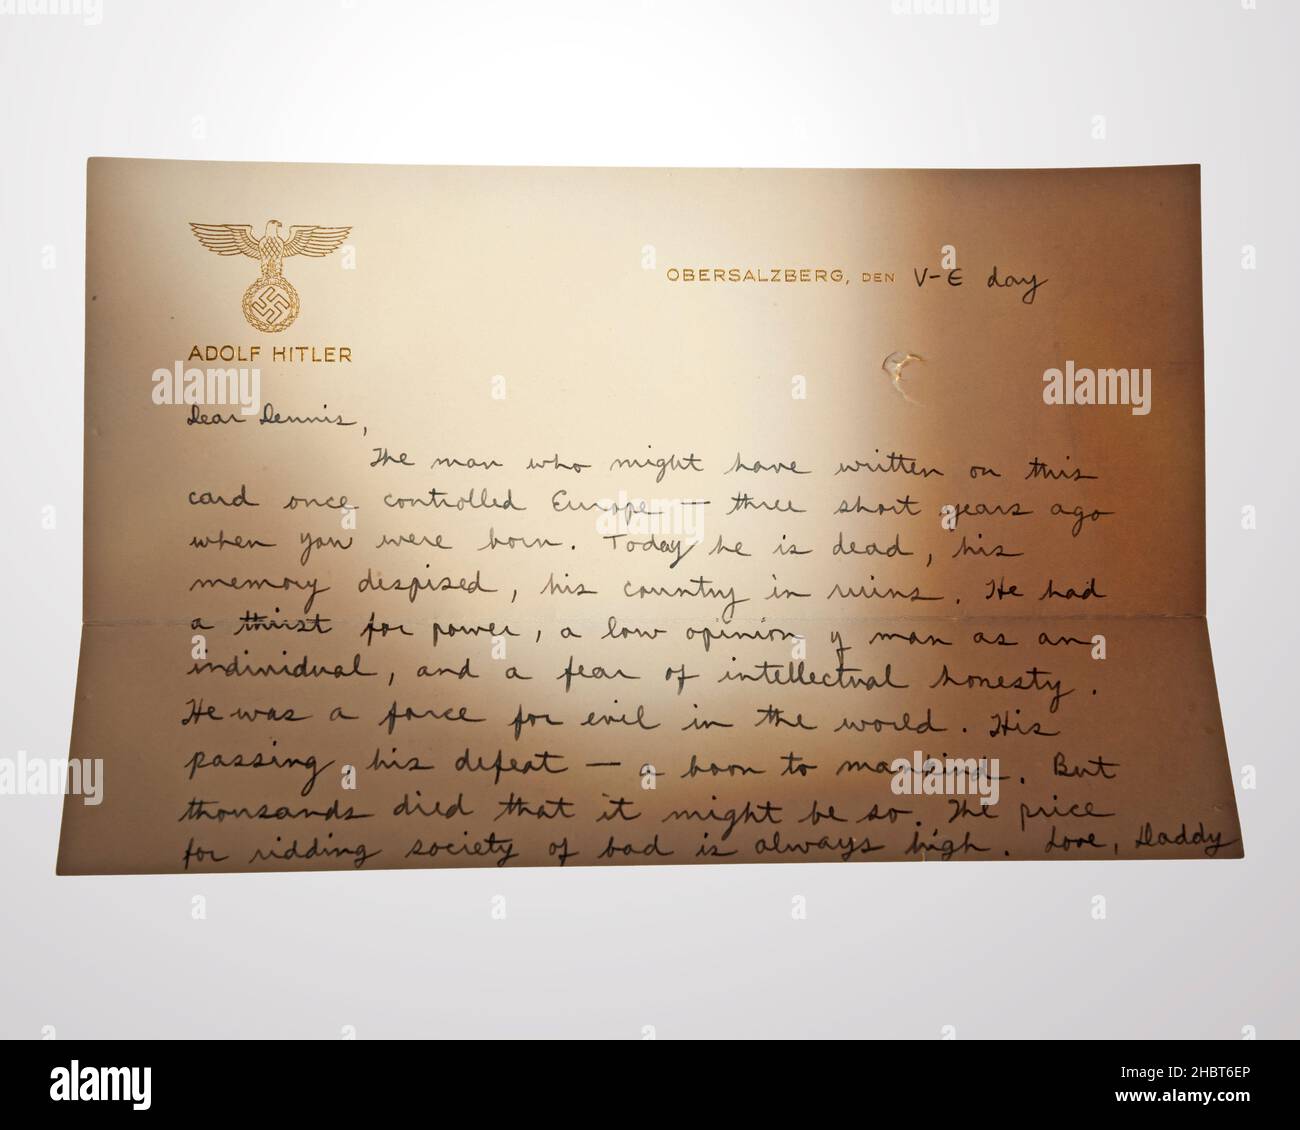 ADOLF HITLER
OBERSALZBERG, DEN V-E day
Dear Dennis,
The man who might have written on this
card once controlled Europe — three short years ago
when you were born. Today he is dead, his
memory despised, his country in ruins. He had
a thirst for power, a low opinion of man as an
individual, and a fear of intellectual honesty.
He was a force for evil in the world. His
passing, his defeat — a boon to mankind. But
thousands died that it might be so. The price
for ridding society of bad is always high. Love, Daddy
alamy
Image ID: 2HBT6EP
www.alamy.com